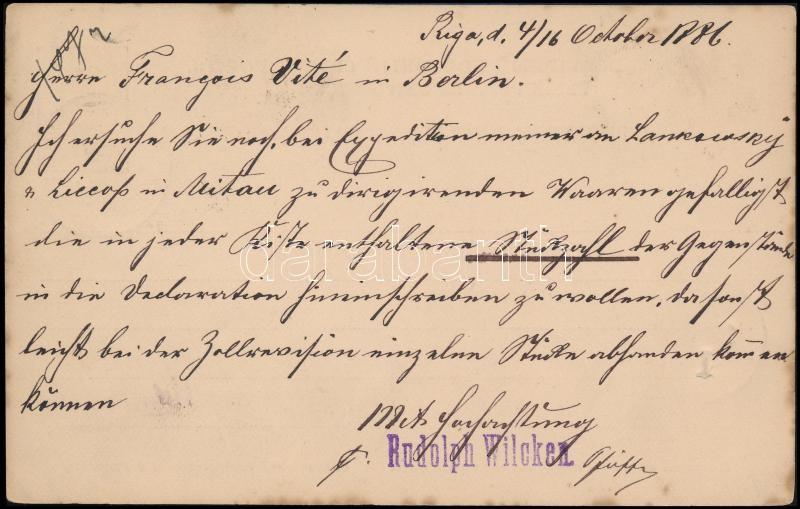 Riga, d. 4/16 October 1886.
Herrn François Vité in Berlin.
Ich ersuche Sie noch, bei Expedition meiner an Lankowsky
u Liccop in Mitau zu dirigirenden Waaren gefälligst
die in jeder Kiste enthaltene Stückzahl der Gegenstände
in die Declaration hineinschreiben zu wollen, da sonst
leicht bei der Zollrevision einzelne Stücke abhanden kommen
können
Mit Hochachtung
Rudolph Wilcken.
darabanth